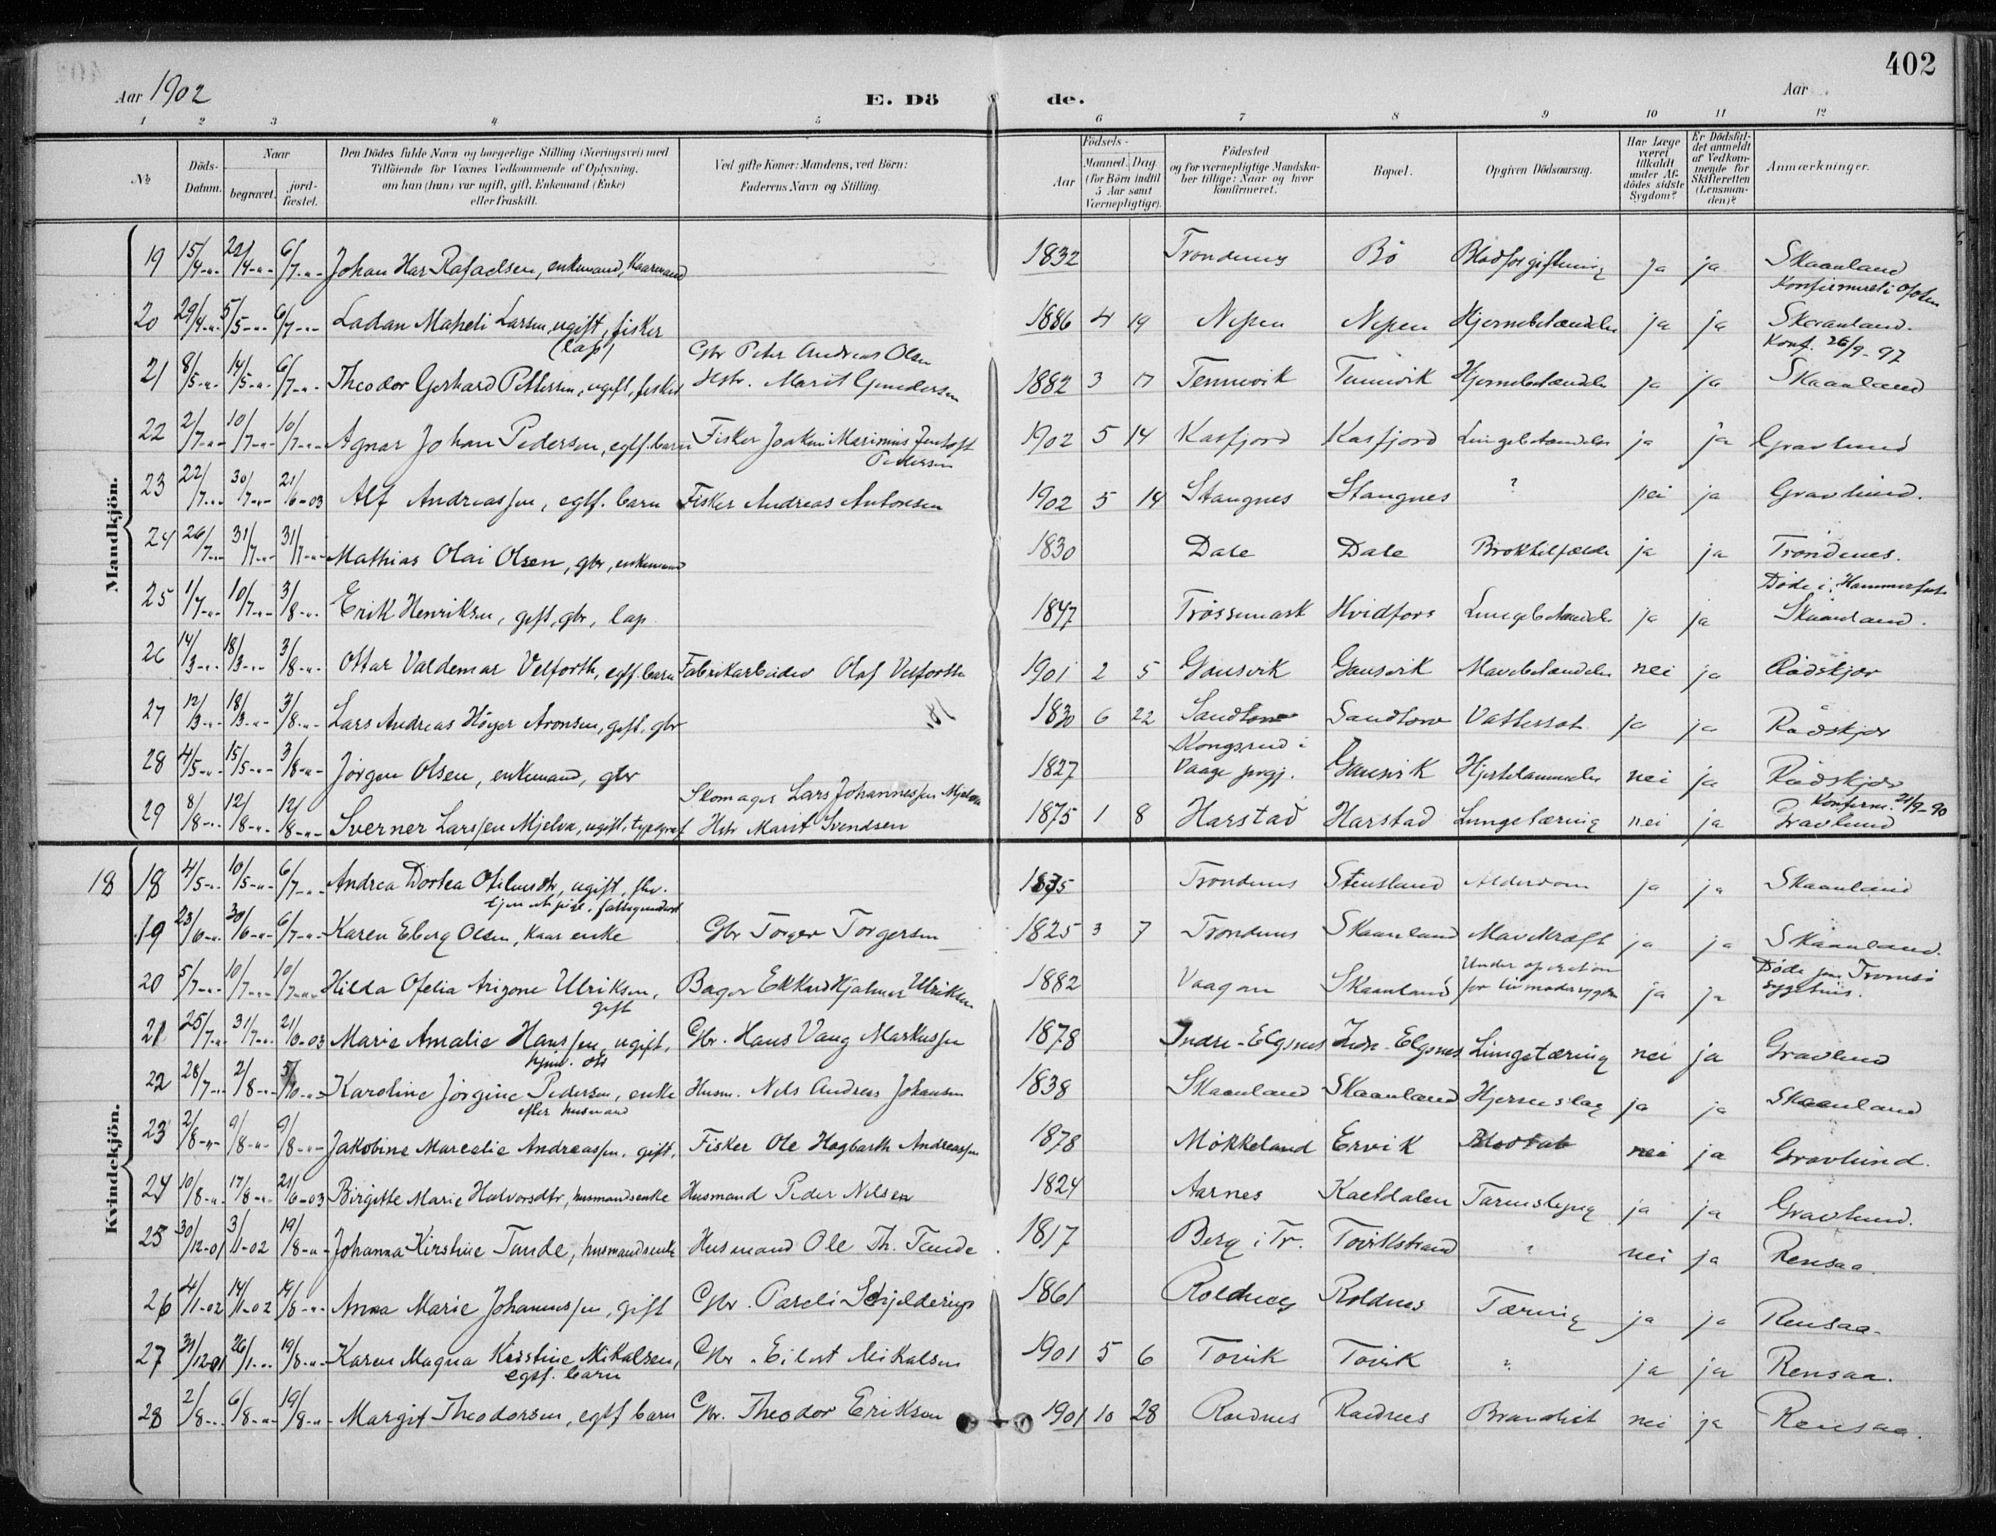 402
Aar 1902
E. Dö de.
Aar
1 2 3 4 5 6 7 8 9 10 11 12
№
Döds-Datum.
Naar
begravet.
jord-fæstet.
Den Dödes fulde Navn og borgerlige Stilling (Næringsvei) med
Tilföiende for Voxnes Vedkommende af Oplysning,
om han (hun) var ugift, gift, Enkemand (Enke)
eller fraskilt.
Ved gifte Koner: Mandens, ved Börn:
Faderens Navn og Stilling.
Födsels-
Aar
Maaned. Dag.
(for Börn indtil
5 Aar samt
Værnepligtige).
Födested
og for værnepligtige Mandska-
ber tillige: Naar og hvor
konfirmeret.
Bopæl.
Opgiven Dödsaarsag.
Har Læge
været
tilkaldt
under Af-
dödes sidste
Sygdom?
Er Dödsfal-
det anmeldt
af Vedkom-
mende for
Skifteretten
(Lensman-
den)?
Anmærkninger.
Mandkjön.
19 15/4 22/4 6/7 Johan Rafaelsen, enkemand, Kaarmand 1832 Trondenes Bö Blodforgiftning ja ja Skaanland
Konfirmert i Ofoten
20 29/4 5/5 6/7 Ladan Larsen, ugift, fisker 1886 4 19 Hjernebetændelse ja ja Skaanland.
(lap) Gbr Peter Andreas Olsen Konf. 26/9-97
21 8/5 14/5 6/7 Theodor Gerhard Pettersen, ugift, fisker Hstr. Marit 1882 3 17 Tennevik Tennevik Hjernebetændelse ja ja Skaanland
22 2/7 10/7 10/7 Agnar Johan Pedersen, egtf. barn Fisker Joakim Marinius Jentoft 1902 5 14 Kasfjord Kasfjord Lungebetændelse ja ja Gravlund
Pedersen
23 22/7 30/7 21/6-03 Alf Andreassen, egtf. barn Fisker Andreas Antonsen 1902 5 14 Stangnes Stangnes ? nei ja Gravlund.
24 26/7 31/7 31/7 Mathias Olai Olsen, gbr, enkemand 1830 Dale Dale Broktilfælde ja ja Trondenes.
Döde i Hammerfest
25 1/7 10/7 3/8 Erik Henriksen, gift, gbr, lap 1847 Trössemark Hvidfors Lungebetændelse ja ja Skaanland.
26 14/3 18/3 3/8 Ottar Valdemar Velforth, egtf. barn Fabrikarbeider Olaf Velforth 1901 2 5 Gausvik Gausvik Mavebetændelse nei ja Rödskjær
27 12/3 18/3 3/8 Lars Andreas Höyer Aronsen, gift, gbr 18 1830 6 22 Sandtorv Sandtorv Vattersot ja ja Rödskjær
28 4/5 15/5 3/8 Jörgen Olsen, enkemand, gbr 1827 Kongsrud i
Vaage prgj. Gausvik nei ja Rödskjær
Skomager Lars Johannessen Mjelva Konfirm. 21/9-90
29 8/8 12/8 12/8 Sverner Larssen Mjelva, ugift, typograf Hstr Marit Svendsen 1875 1 8 Harstad Harstad Lungetæring nei ja Gravlund
Kvindekjön.
18 18 4/5 10/5 6/7 Andrea Dortea ugift, 1835 Trondenes Stensland Alderdom ja ja Skaanland
19 23/6 30/6 6/7 Karen Eberg Olsen, Kaarenke Gbr Torger Torgersen 1825 3 7 Trondenes Skaanland Mavekræft ja ja Skaanland.
20 5/7 10/7 10/7 Hilda Ofelia Arizone Ulriksen, Bager Ekkard Hjalmar Ulriksen 1882 Vaagan Skaanland Under operation
for livmodersygdom ja ja Döde paa Tromsö
sygehus.
gift
21 25/7 31/7 21/6-03 Marie Amalie Hanssen, ugift, Gbr. Hans Vang Markussen 1878 Indre-Elgsnes Indr-Elgsnes Lungetæring nei ja Gravlund
22 28/7 2/8 5/10 Karoline Jörgine Pedersen, enke Husm. Nels Andreas Johansen 1838 Skaanland Skaanland Hjerneslag ja ja Skaanland
efter husmand
23 2/8 9/8 9/8 Jakobine Marcelie Andreassen, gift, Fisker Ole Hagbarth Andreassen 1878 Mökkeland Ervik Blodtab nei ja Gravlund.
24 10/8 17/8 21/6-03 Birgitte Marie Halvorsdtr, husmandsenke Husmand Peder Nilsen 1824 Aarnes Kaetdalen Tarmslyng ja ja Gravlund.
25 30/12-01 3/1-02 19/8 Johanna Kirstine Tande, husmandsenke Husmand Ole Th. Tande 1817 Berg i Tr. Tovikstrand ? nei ja Rensaa.
26 4/1-02 14/1-02 19/8 Anna Marie Johannessen, gift Gbr. Pareli Schjelderup 1861 Roldnes Roldnes Tæring ja ja Rensaa.
27 31/12-01 26/1 19/8 Karen Magna Kirstine Mikalsen, Gbr. Eilert Mikalsen 1901 5 6 Tovik Tovik ? ja ja Rensaa.
egtf. barn
28 2/8 6/8 19/8 Margit Theodorsen, egtf barn Gbr. Theodor Eriksen 1901 10 28 Roldnes Roldnes nei ja Rensaa.